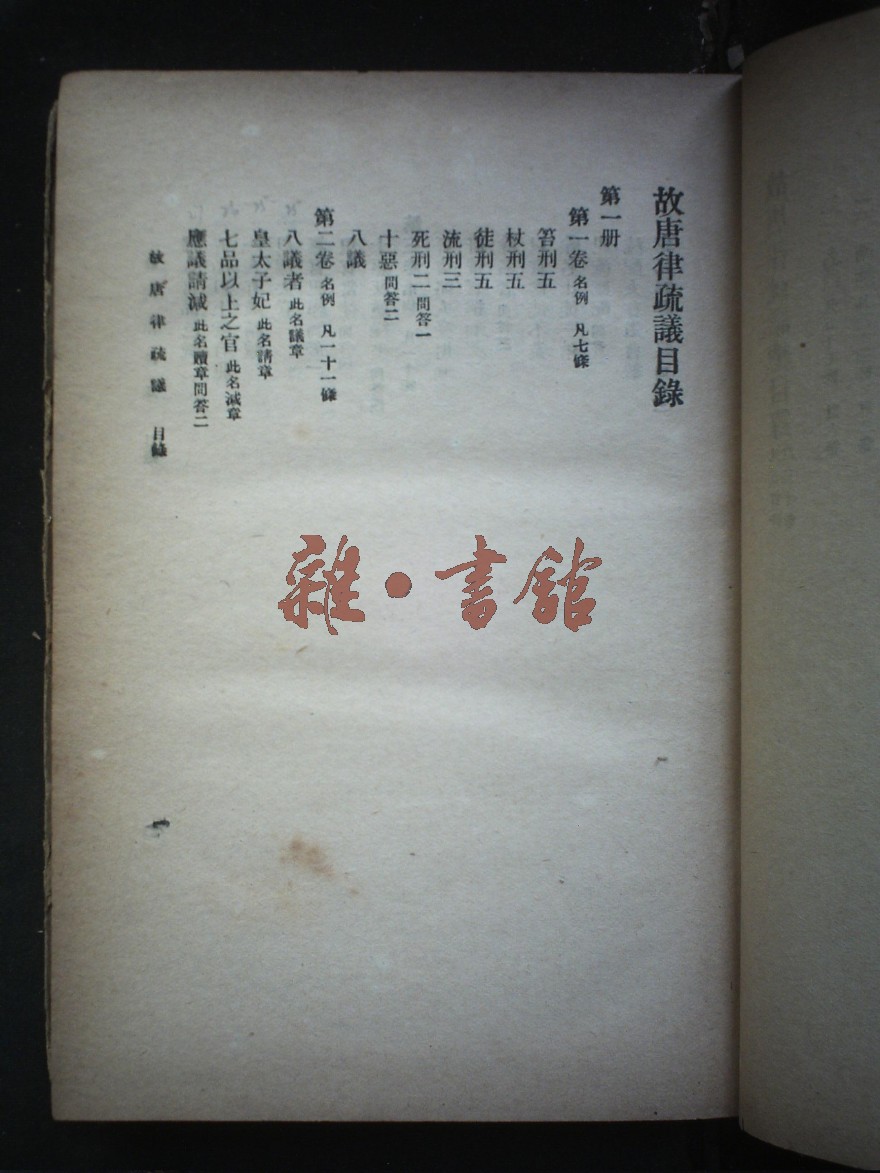 故唐律疏議目錄
第一册
第一卷 名例 凡七條
笞刑五
杖刑五
徒刑五
流刑三
死刑二 問答一
十惡 問答二
八議
第二卷 名例 凡一十一條
八議者 此名議章
皇太子妃 此名請章
七品以上之官 此名減章
應議請減 此名贖章問答二
故唐律疏議 目錄
雜·書館